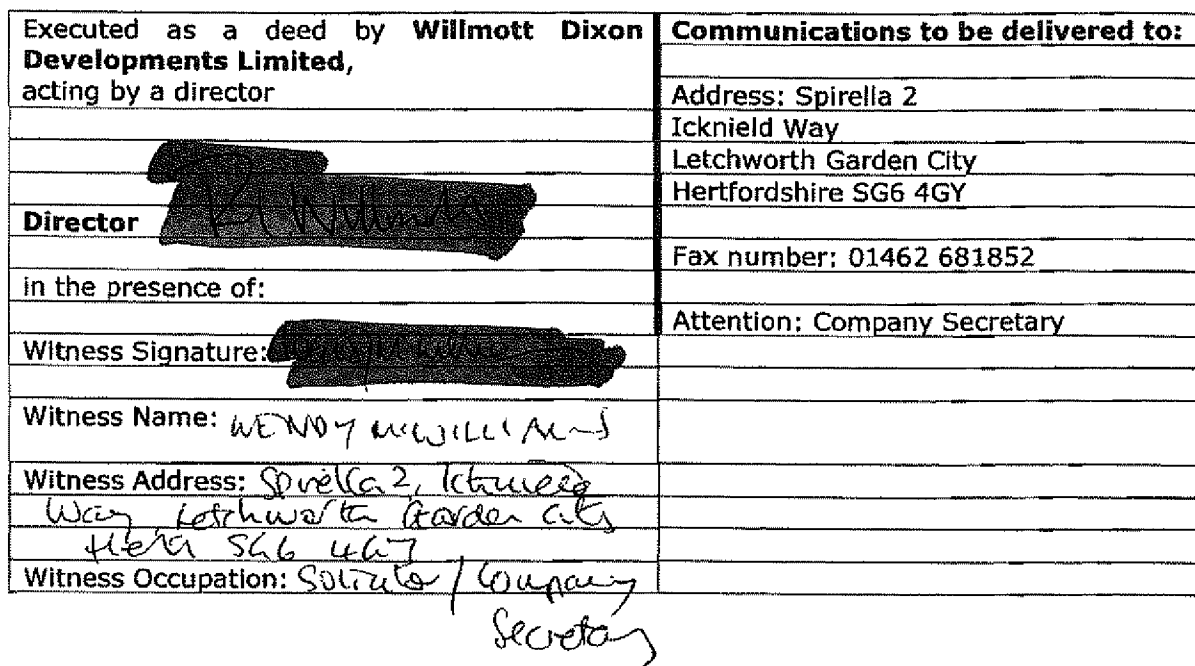 Executed as a deed by Willmott Dixon
Developments Limited,
acting by a director
Director
in the presence of:
Witness Signature:
Witness Name: WENDY MCWILLIAMS
Witness Address: Spirella 2, Icknield
Way, Letchworth Garden City
Herts SG6 4GY
Witness Occupation: Solicitor / Company
Secretary
Communications to be delivered to:
Address: Spirella 2
Icknield Way
Letchworth Garden City
Hertfordshire SG6 4GY
Fax number: 01462 681852
Attention: Company Secretary